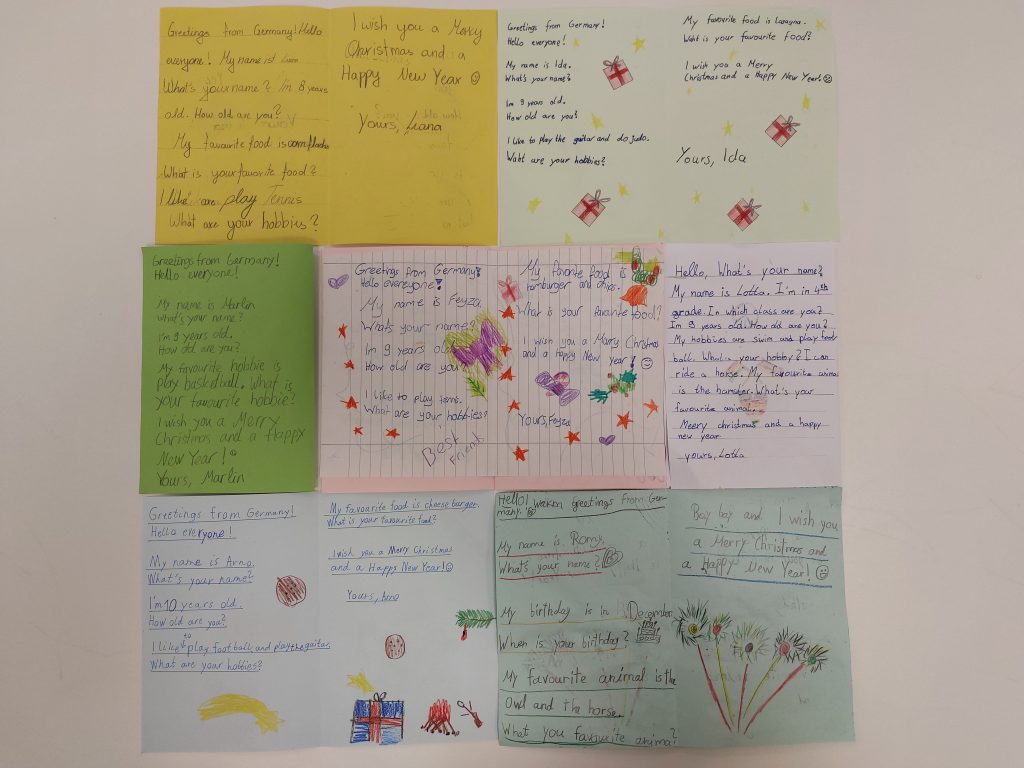 Greetings from Germany! Hello
everyone! My name ist
What's your name? I'm 8 years
old. How old are you?
My favourite food is cornflacks
What is your favorite food?
I like are play Tennis
What are your hobbies?
I wish you a Merry
Christmas and a
Happy New Year ☺
Yours, Liana
Greetings from Germany!
Hello everyone!
My name is Ida.
What's your name?
I'm 9 years old.
How old are you?
I like to play the guitar and do judo.
Waht are your hobbies?
My favourite food is lasagna.
Waht is your favourite food?
I wish you a Merry
Christmas and a Happy New Year! ☺
Yours, Ida
Greetings from Germany!
Hello everyone!
My name is Marlin
what's your name?
I'm 9 years old.
How old are you?
My favourite hobbie is
play basketball. What is
your favourite hobbie?
I wish you a Merry
Christmas and a Happy
New Year! ☺
Yours, Marlin
Greetings from Germany!
Hello evereyone!
My name is Feyza.
What's your name?
I'm 9 years old
How old are you
I like to play tenis.
What are your hobbies?
Best
Friends
My favorite food is
hamburger and chips.
What is your favorite food?
I wish you a Marry Christmas
and a Happy New year! ☺
Yours, Feyza
Hello, What's your name?
My name is Lotta. I'm in 4th
grade. In which class are you?
I'm 9 years old. How old are you?
My hobbies are swim and play foot
ball. What's your hobby? I can
ride a horse. My favourite animal
is the hamster. What's your
favourite animal.
Meery christmas and a happy
new year
yours, Lotta
Greetings from Germany!
Hello everyone!
My name is Arno.
What's your name?
I'm 10 years old.
How old are you?
I like to play football and play the guitar.
What are your hobbies?
My favourite food is cheeseburger.
What is your favourite food?
I wish you a Merry Christmas
and a Happy New Year! ☺
Yours, Arno
Hello! greetings from Ger-
many. ☺
My name is Romy.
What's your name?
My birthday is in December
When is your birthday?
My favourite animal is the
Owl and the horse.
What you favourite animal?
Bay bay and I wish you
a Merry Christmas and
a Happy New Year! ☺